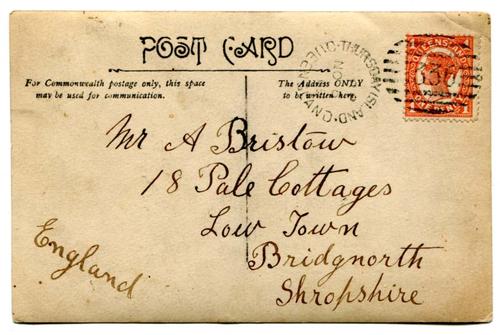 POST CARD
For Commonwealth postage only, this space
may be used for communication.
The Address ONLY
to be written here.
THURSDAY ISLAND · QUEENSLAND
NO
QUEENSLAND
Mr A Bristow
18 Pale Cottages
Low Town
Bridgnorth
Shropshire
England